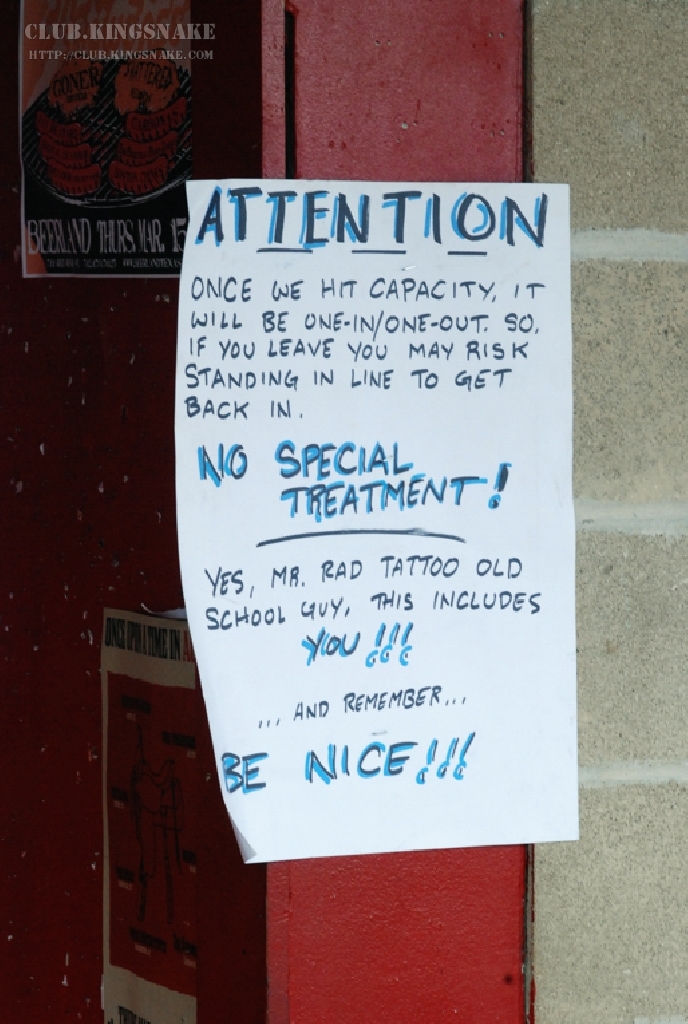 CLUB.KINGSNAKE
HTTP://CLUB.KINGSNAKE.COM
GONER
BEERLAND THURS. MAR. 15
ATTENTION
ONCE WE HIT CAPACITY, IT
WILL BE ONE-IN/ONE-OUT. SO,
IF YOU LEAVE YOU MAY RISK
STANDING IN LINE TO GET
BACK IN.
NO SPECIAL
TREATMENT!
YES, MR. RAD TATTOO OLD
SCHOOL GUY, THIS INCLUDES
YOU!!!
... AND REMEMBER...
BE NICE!!!
ONCE UPON A TIME IN